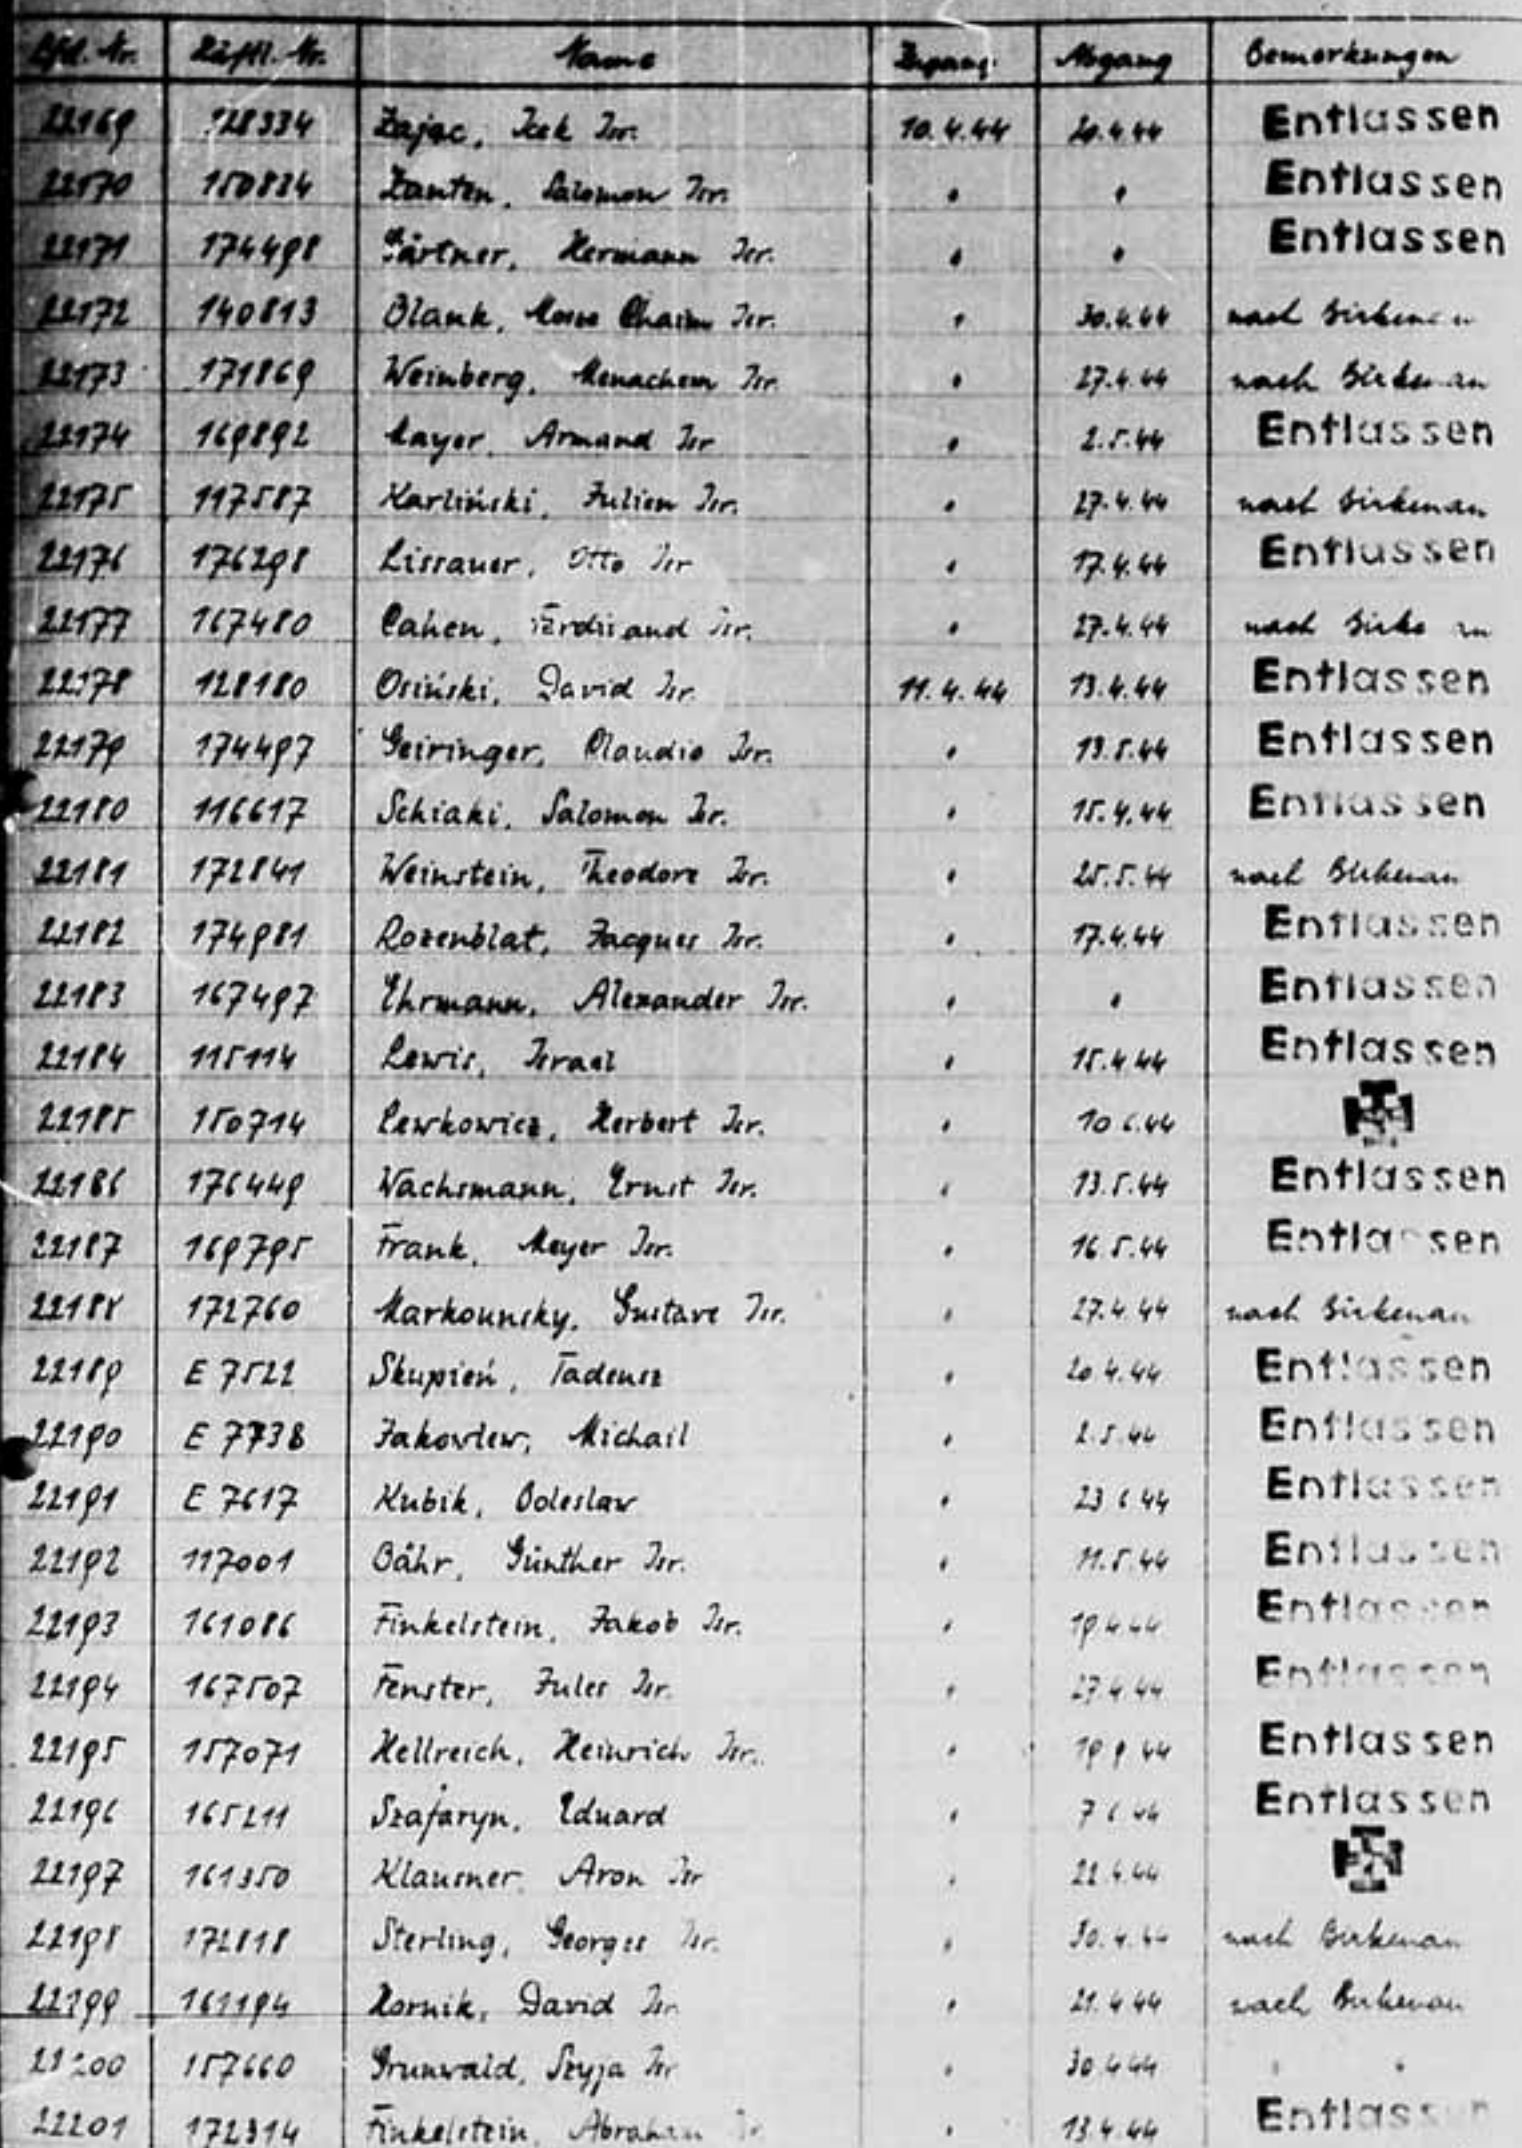 Lfd. Nr. Häftl. Nr. Name Zugang Abgang Bemerkungen
22169 128334 Zajac, Icek Isr. 10.4.44 20.4.44 Entlassen
22170 150824 Zanten, Salomon Isr. " " Entlassen
22171 174498 Gärtner, Hermann Isr. " " Entlassen
22172 140813 Blank, Chaim Isr. " 30.4.44 nach Birkenau
22173 171869 Weinberg, Menachem Isr. " 27.4.44 nach Birkenau
22174 169892 Mayer, Armand Isr " 2.5.44 Entlassen
22175 117587 Karliński, Julien Isr. " 27.4.44 nach Birkenau
22176 176298 Lissauer, Otto Isr " 17.4.44 Entlassen
22177 167480 Cahen, Ferdinand Isr. " 27.4.44 nach Birkenau
22178 128180 Osiński, David Isr. 11.4.44 13.4.44 Entlassen
22179 174497 Geiringer, Claudio Isr. " 13.5.44 Entlassen
22180 116617 Schiaki, Salomon Isr. " 15.4.44 Entlassen
22181 172841 Weinstein, Theodore Isr. " 25.5.44 nach Birkenau
22182 174981 Rozenblat, Jacques Isr. " 17.4.44 Entlassen
22183 167497 Ehrmann, Alexander Isr. " " Entlassen
22184 115114 Lewis, Israel " 15.4.44 Entlassen
22185 150714 Lewkowicz, Herbert Isr. " 10.6.44
22186 176449 Wachsmann, Ernst Isr. " 13.5.44 Entlassen
22187 169795 Frank, Meyer Isr. " 16.5.44 Entlassen
22188 172760 Markounsky, Gustave Isr. " 27.4.44 nach Birkenau
22189 E 7522 Skupień, Tadeusz " 20.4.44 Entlassen
22190 E 7738 Jakowlew, Michail " 2.5.44 Entlassen
22191 E 7617 Kubik, Boleslaw " 23.6.44 Entlassen
22192 117001 Bähr, Günther Isr. " 11.5.44 Entlassen
22193 161086 Finkelstein, Jakob Isr. " 19.4.44 Entlassen
22194 167507 Fenster, Jules Isr. " 27.4.44 Entlassen
22195 157071 Hellreich, Heinrich Isr. " 44 Entlassen
22196 165211 Szafaryn, Eduard " 7.6.44 Entlassen
22197 161350 Klausner Aron Isr " 44
22198 172818 Sterling, Georges Isr. " 30.4.44 nach Birkenau
22199 161194 Hornik, David Isr. " 21.4.44 nach Birkenau
22200 157660 Grunwald, Szyja Isr " 30.4.44 " "
22201 172314 Finkelstein, Abraham Isr " 13.4.44 Entlassen